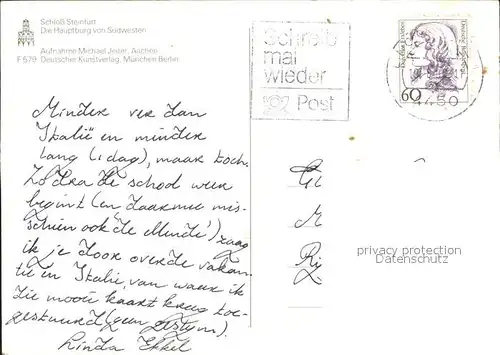 Schloß Steinfurt
Die Hauptburg von Südwesten
Aufnahme Michael Jeiter, Aachen
F 679 Deutscher Kunstverlag, München Berlin
Schreib
mal
wieder
Post
60
Deutsche Bundespost
4450
Minder ver dan
Italië en minder
lang (1 dag), maar toch.
Zodra de school weer
begint (en daarmee mis-
schien ook 'de Minde') zag
ik je door over de vakan
tie en Italie, van waar ik
die mooie kaart kreeg toe-
gestuurd (geen gestijm).
Linda
Gl
M
Rij
privacy protection
Datenschutz